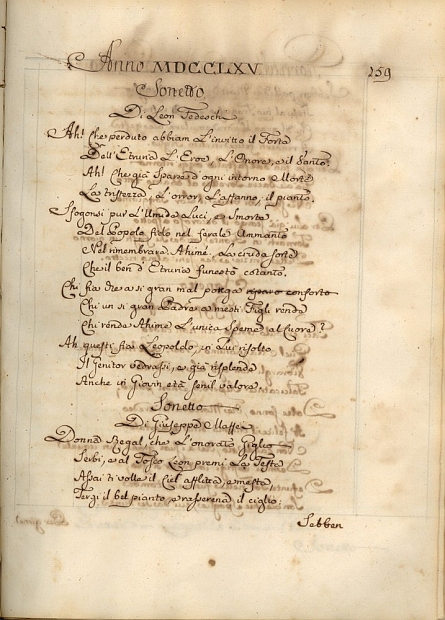 Anno MDCCLXV.
259
Sonetto
Di Leon Tedeschi
Ah! Che perduto abbiam L'invitto il Forte
Dell'Etruria L'Eroe, L'Onore, e il Santo.
Ah! Che già sparse d'ogni intorno Morte
La tristezza, L'orror, L'affanno, il pianto.
Sfogonsi pur L'Umide Luci, e Smorte
Del Popolo fido nel ferale Ammanto
Nel rimembrare Ahimè, La cruda sorte
Che il ben d'Etruria funestò cotanto.
Chi fia che a si gran mal porga conforto
Chi un si gran Padre a mesti Figli renda
Chi renda Ahimè L'unica Speme al Cuore?
Ah questi fia Leopoldo, in Lui risolto
Il Genitor vedrassi, e già risplende
Anche in Giovin età senil valore.
Sonetto
Di Giuseppe Maffei
Donna Regal, che L'onorato Giglio
Serbi, e al Tosco Leon premi La Testa
Assai ti volle il Ciel afflitta, e mesta
Tergi il bel pianto, e rasserena il ciglio:
Sebben